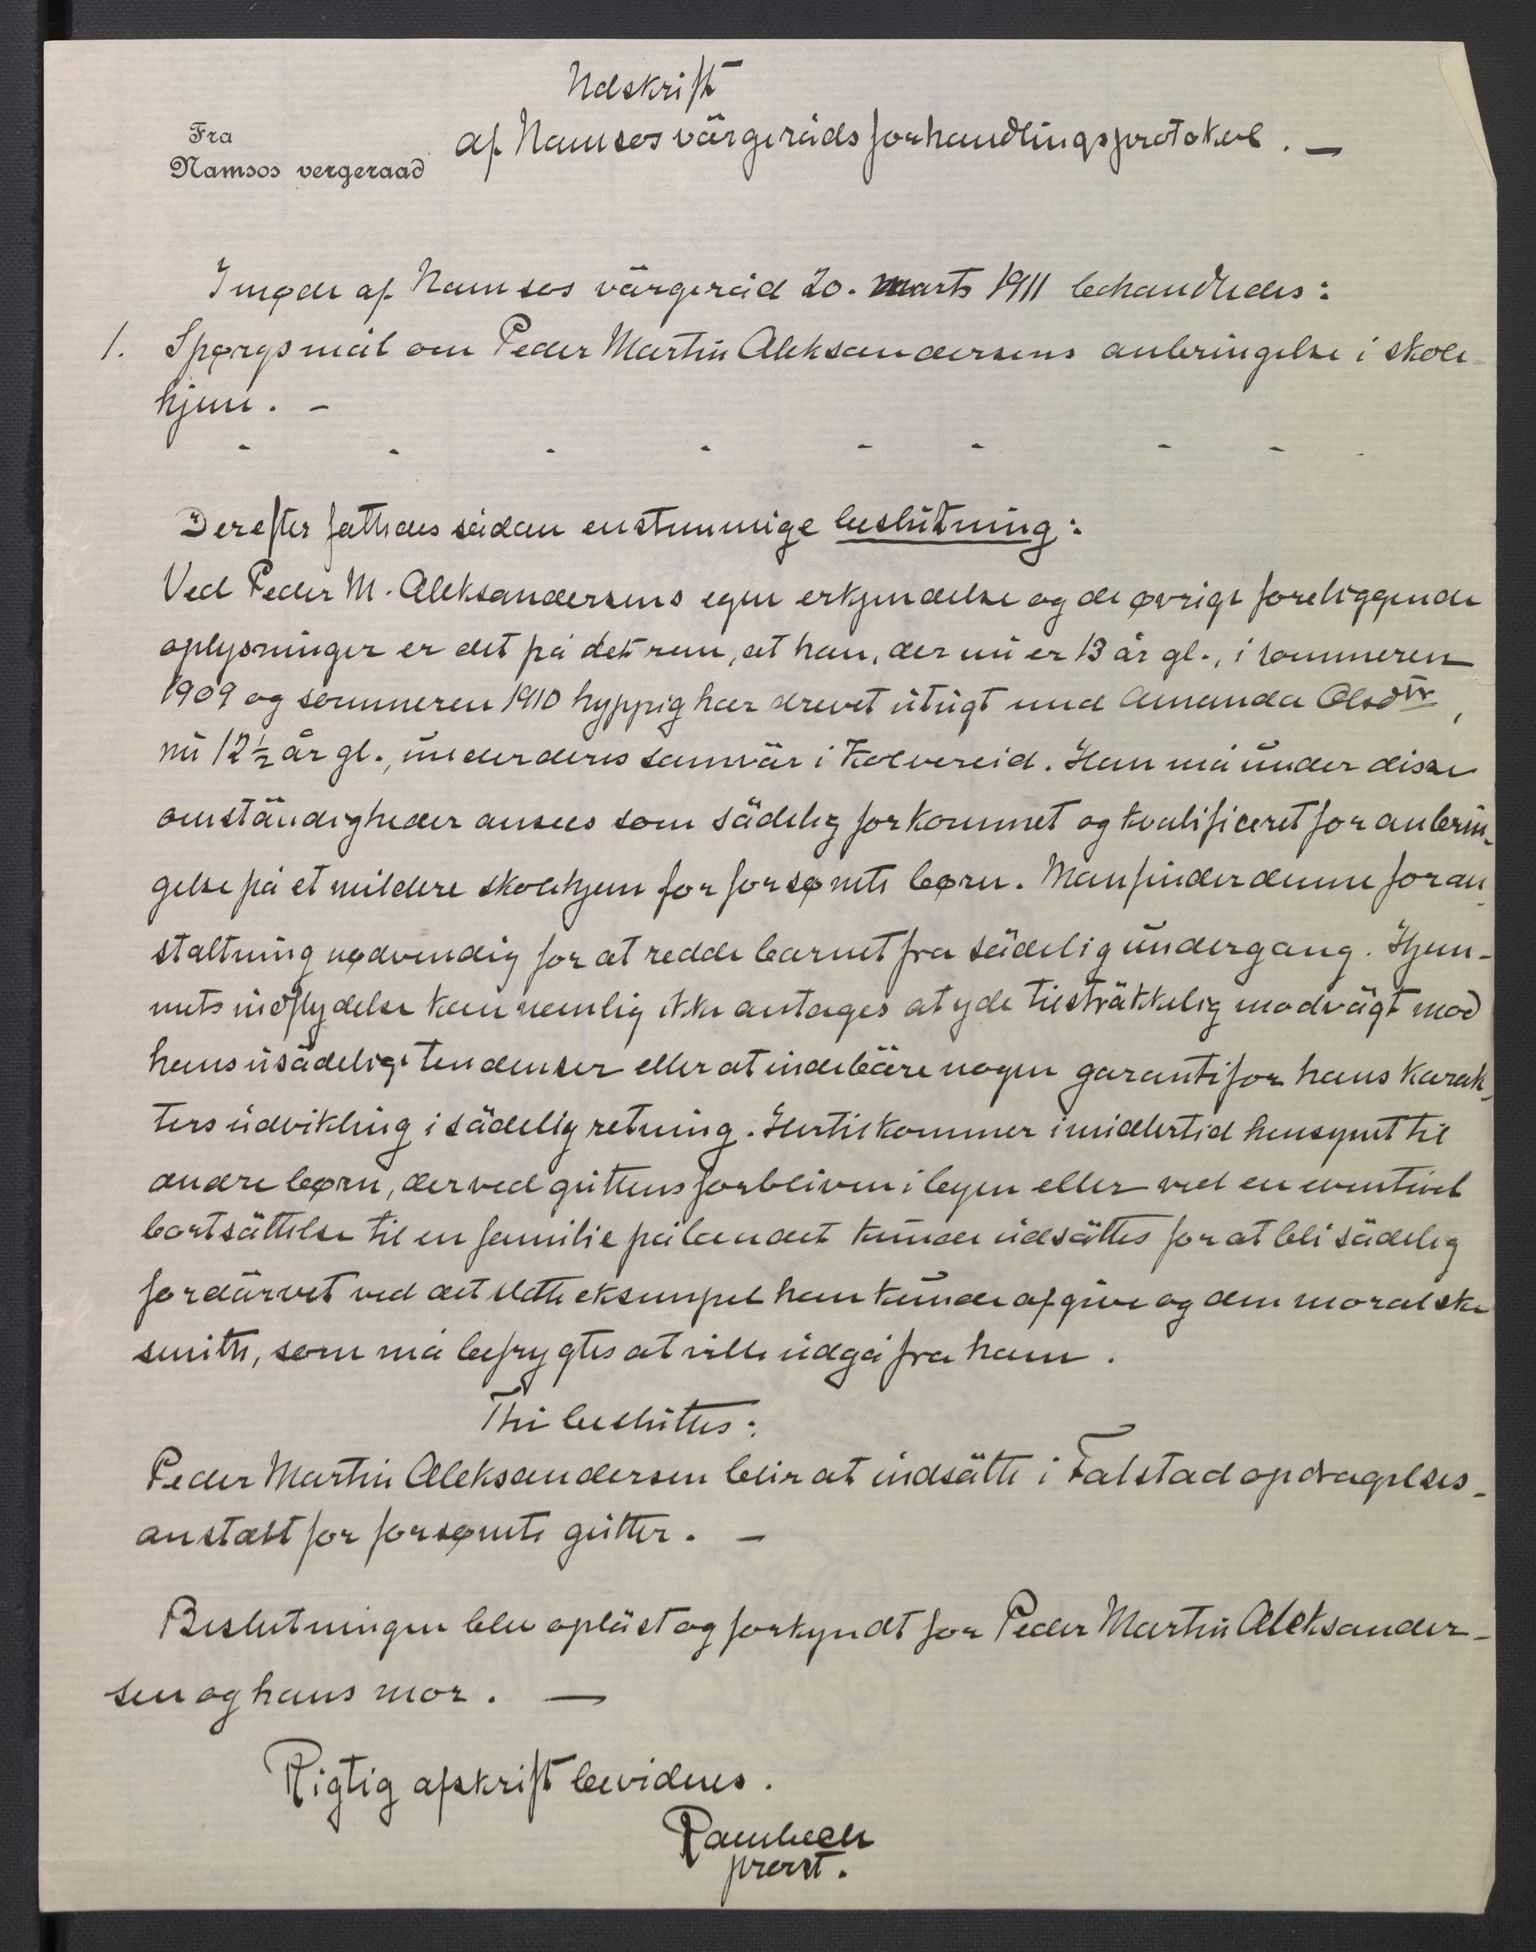 Udskrift
Fra
Namsos vergeraad
af Namsos värgeråds forhandlingsprotokol. —
I møde af Namsos värgeråd 20. marts 1911 behandledes:
1. Spørgsmål om Peder Martin Aleksandersens anbringelse i skole-
hjem. —
- - - - - - - -
Derefter fattedes sådan enstemmige beslutning:
Ved Peder M. Aleksandersens egen erkjendelse og de øvrige foreliggende
oplysninger er det på det rene, at han, der nu er 13 år gl., i sommeren
1909 og sommeren 1910 hyppig har drevet utugt med Amanda Olsdtr,
nu 12½ år gl., under deres samvär i Kolvereid. Han må under disse
omständigheder ansees som sädelig forkommet og kvalificeret for anbrin-
gelse på et mildere skolehjem for forsømte børn. Man finder denne foran-
staltning nødvendig for at redde barnet fra sädelig undergang. Hjem-
mets indflydelse kan nemlig ikke antages at yde tilsträkkelig modvägt mod
hans usädelige tendenser eller at indebäre nogen garanti for hans karak-
ters udvikling i sädelig retning. Hertil kommer imidlertid hensynet til
andre børn, der ved guttens forbliven i byen eller ved en eventuel
bortsättelse til en familie på landet kunde udsättes for at bli sädelig
fordärvet ved det slette eksempel han kunde afgive og den moralske
smitte, som må befrygtes at ville udgå fra ham.
Thi besluttes:
Peder Martin Aleksandersen blir at indsätte i Falstad opdragelses-
anstalt for forsømte gutter. —
Beslutningen blev opläst og forkyndt for Peder Martin Aleksander-
sen og hans mor. —
Rigtig afskrift bevidnes.
Rambech
provst.